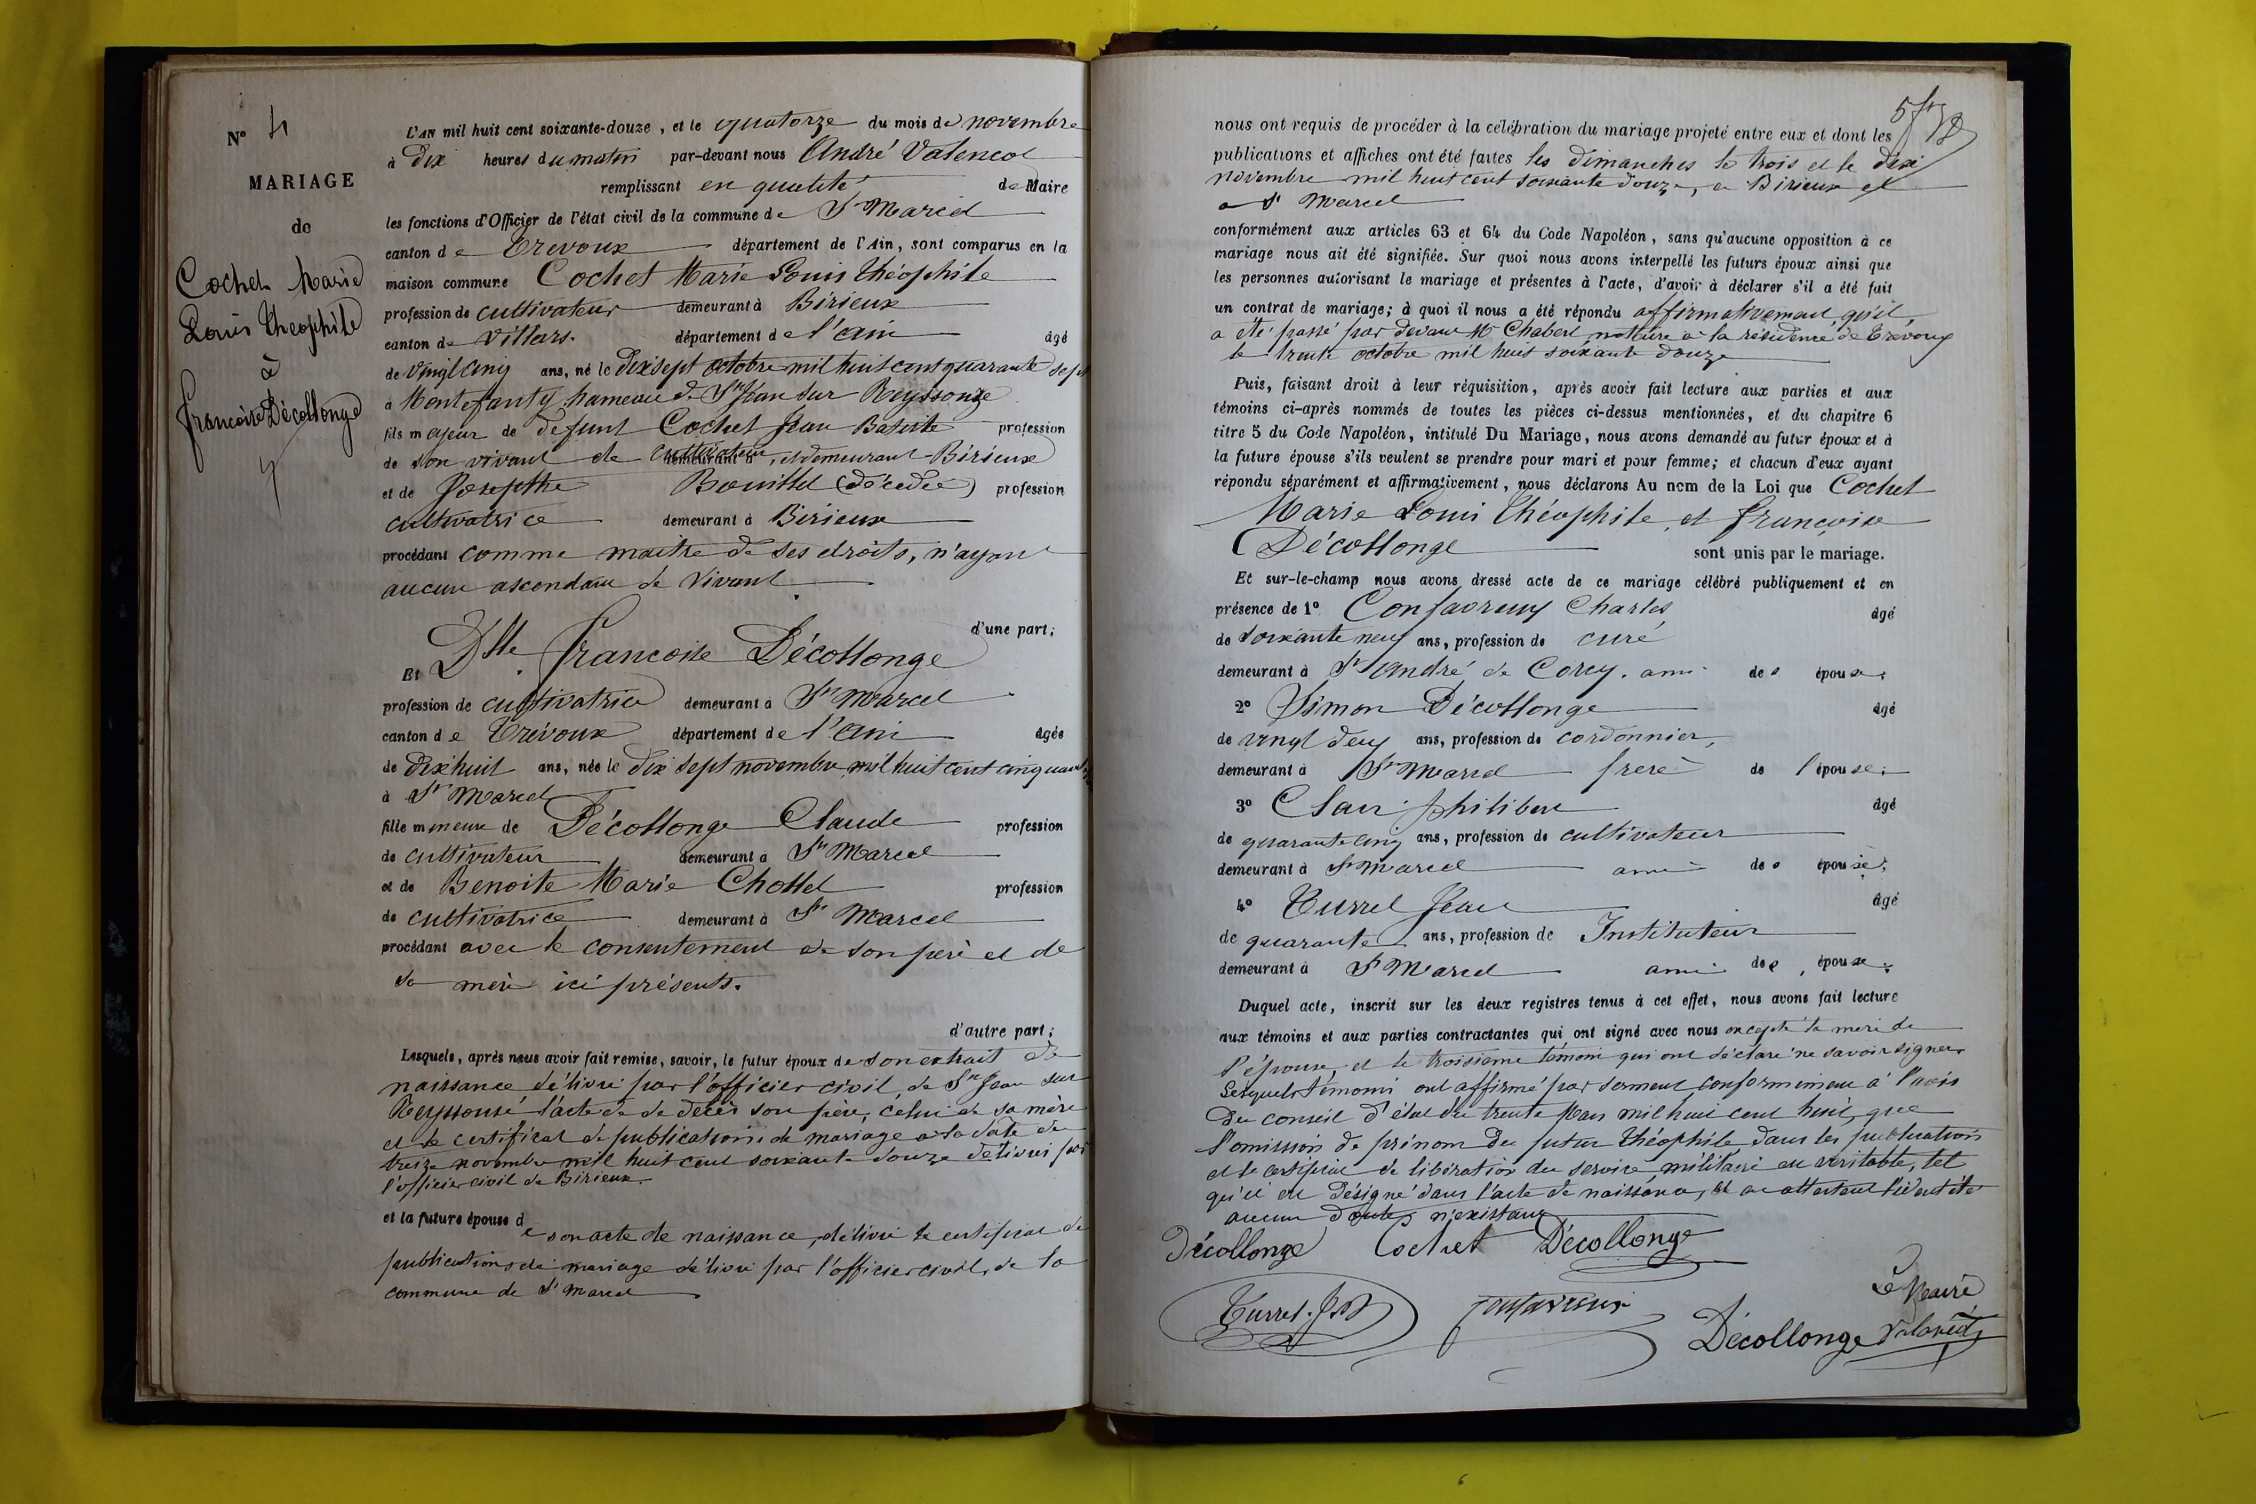 N° 4
MARIAGE
de
Cochet Marie
Louis Théophile
à
Francoise Décollonge
L'AN mil huit cent soixante-douze, et le quatorze du mois de novembre
à dix heures du matin par-devant nous André Valencot
remplissant en qualité de Maire
les fonctions d'Officier de l'état civil de la commune de St Marcel
canton de Trevoux département de l'Ain, sont comparus en la
maison commune Cochet Marie Louis Théophile
profession de cultivateur demeurant à Birieux
canton de Villars. département de l'ain âgé
de vingt cinq ans, né le dix sept octobre mil huit cent quarante sept
à Montefanty hameau de St Jean sur Reyssouze
fils majeur de defunt Cochet Jean Batiste profession
de son vivant de cultivateur demeurant à, et demeurant Birieux
et de Josepthe Bouillet (décedée) profession
cultivatrice demeurant à Birieux
procédant comme maitre de ses droits, n'ayant
aucun ascendant de vivant
d'une part;
Et Dlle Francoise Décollonge
profession de cultivatrice demeurant à St Marcel
canton de Trévoux département de l'ain âgée
de dix huit ans, née le dix sept novembre mil huit cent cinquante
à St Marcel
fille mineure de Décollonge Claude profession
de cultivateur demeurant à St Marcel
et de Benoite Marie Chollet profession
de cultivatrice demeurant à St Marcel
procédant avec le consentement de son père et de
sa mère ici présents.
d'autre part;
Lesquels, après nous avoir fait remise, savoir, le futur époux de son extrait de
naissance délivré par l'officier civil de St Jean sur
Reyssouse l'acte de de décès son père, celui de sa mère
et le certificat de publications de mariage a la date du
treize novembre mil huit cent soixante douze délivré par
l'officier civil de Birieux.
et la future épouse de son acte de naissance, délivré le certificat de
publications de mariage délivré par l'officier civil, de la
commune de St Marcel
nous ont requis de procéder à la célébration du mariage projeté entre eux et dont les
publications et affiches ont été faites les dimanches le trois et le dix
novembre mil huit cent soixante douze, a Birieux et
a St Marcel
conformément aux articles 63 et 64 du Code Napoléon, sans qu'aucune opposition à ce
mariage nous ait été signifiée. Sur quoi nous avons interpellé les futurs époux ainsi que
les personnes autorisant le mariage et présentes à l'acte, d'avoir à déclarer s'il a été fait
un contrat de mariage; à quoi il nous a été répondu affirmativement qu'il
a été passé par devant Me Chabert, notaire a la résidence de Trévoux
le trente octobre mil huit soixante douze
Puis, faisant droit à leur réquisition, après avoir fait lecture aux parties et aux
témoins ci-après nommés de toutes les pièces ci-dessus mentionnées, et du chapitre 6
titre 5 du Code Napoléon, intitulé Du Mariage, nous avons demandé au futur époux et à
la future épouse s'ils veulent se prendre pour mari et pour femme; et chacun d'eux ayant
répondu séparément et affirmativement, nous déclarons Au nom de la Loi que Cochet
Marie Louis Théophile, et Françoise
Décollonge sont unis par le mariage.
Et sur-le-champ nous avons dressé acte de ce mariage célébré publiquement et en
présence de 1° Confavreux Charles âgé
de soixante neuf ans, profession de curé
demeurant à St André de Corcy. ami de s épouse.
2° Simon Décollonge âgé
de vingt deux ans, profession de cordonnier,
demeurant à St Marcel frere de l'épouse.
3° Clair Philibert âgé
de quarante cinq ans, profession de cultivateur
demeurant à St Marcel ami de épouse.
4° Turrel Jean âgé
de quarante ans, profession de Instituteur
demeurant à St Marcel ami de épouse.
Duquel acte, inscrit sur les deux registres tenus à cet effet, nous avons fait lecture
aux témoins et aux parties contractantes qui ont signé avec nous excepté la mère de
l'épouse, et le troisième témoin qui ont déclaré ne savoir signer
Lesquels témoins ont affirmé par serment conformément à l'avis
du conseil d'état du trente Mars mil huit cent huit, que
l'omission de prénom du futur Théophile dans les publications
et le certificat de libération du service militaire est véritable, tel
qu'il est désigné dans l'acte de naissance, et en attestent l'identité
aucun doute n'existant
Décollonge Cochet Décollonge
Turrel. Confavreux
Le Maire
Décollonge Valencot